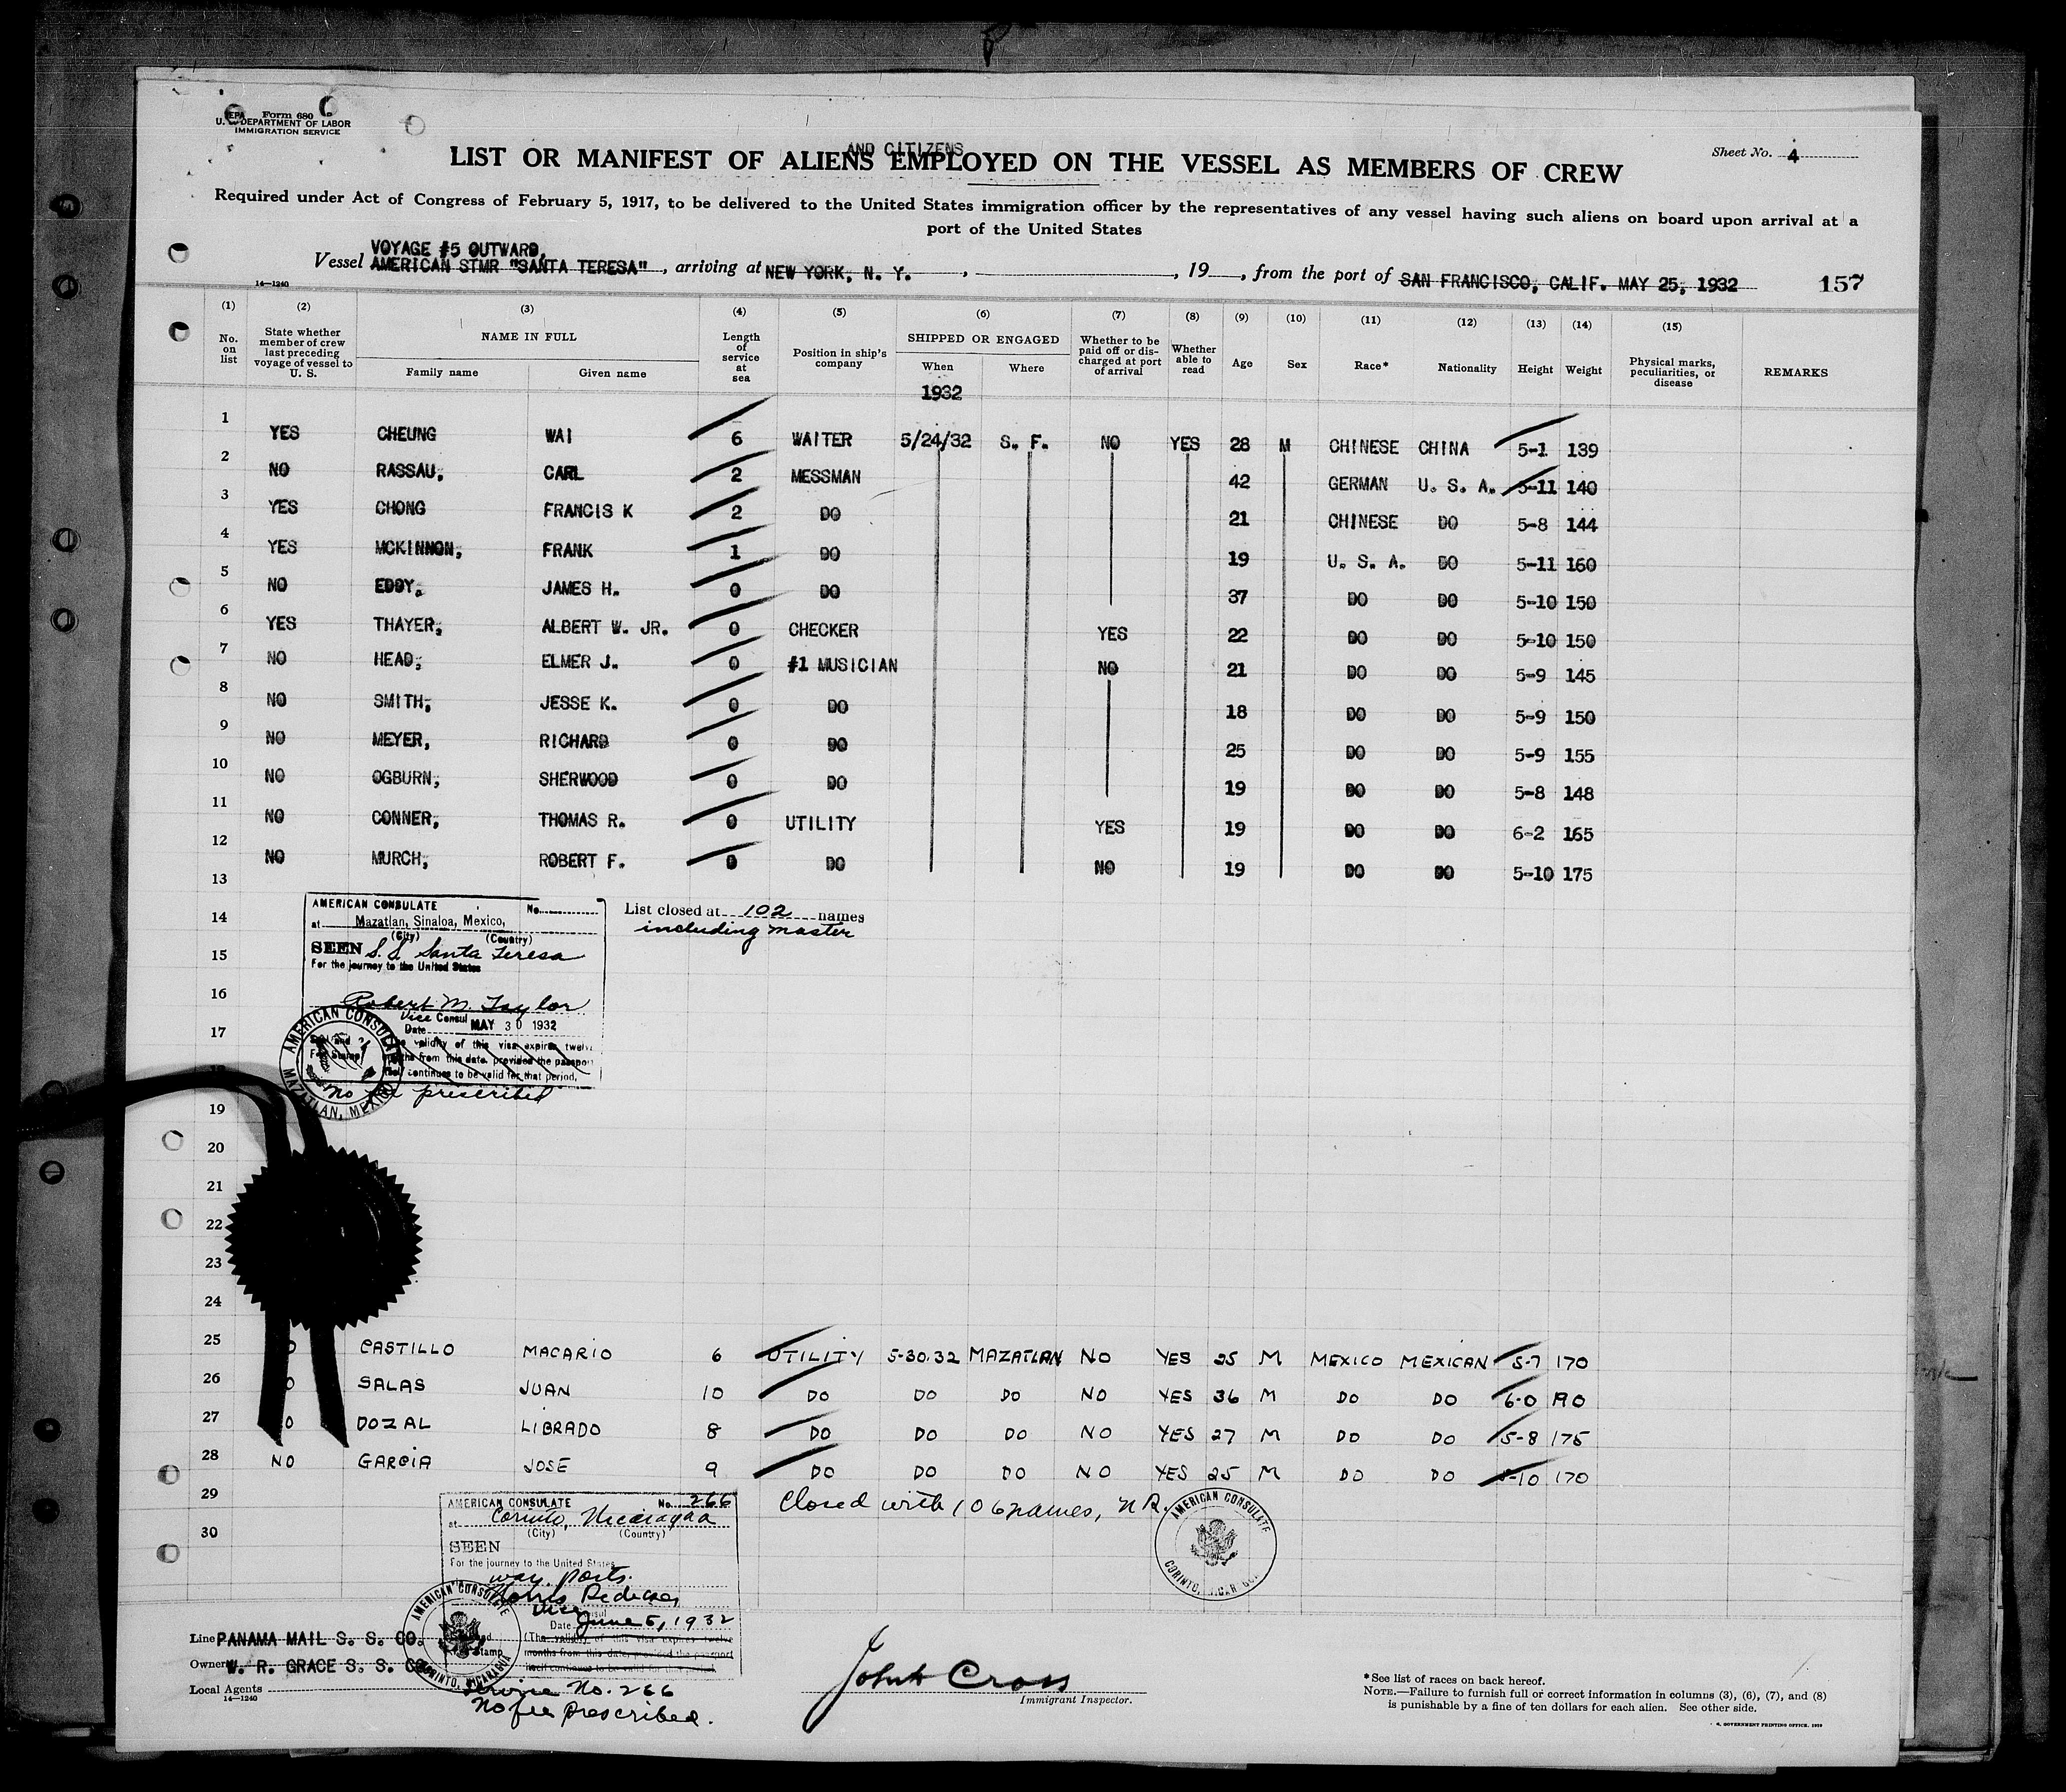 Form 680
U. S. DEPARTMENT OF LABOR
IMMIGRATION SERVICE
Sheet No. 4
AND CITIZENS
LIST OR MANIFEST OF ALIENS EMPLOYED ON THE VESSEL AS MEMBERS OF CREW
Required under Act of Congress of February 5, 1917, to be delivered to the United States immigration officer by the representatives of any vessel having such aliens on board upon arrival at a
port of the United States
VOYAGE #5 OUTWARD,
Vessel AMERICAN STMR "SANTA TERESA", arriving at NEW YORK, N. Y., 19, from the port of SAN FRANCISCO, CALIF. MAY 25, 1932 157
14—1240
(1) (2) (3) (4) (5) (6) (7) (8) (9) (10) (11) (12) (13) (14) (15)
No. on list State whether member of crew last preceding voyage of vessel to U. S. NAME IN FULL Family name Given name Length of service at sea Position in ship's company SHIPPED OR ENGAGED When Where Whether to be paid off or discharged at port of arrival Whether able to read Age Sex Race* Nationality Height Weight Physical marks, peculiarities, or disease REMARKS
1932
1 YES CHEUNG WAI 6 WAITER 5/24/32 S. F. NO YES 28 M CHINESE CHINA 5-1 139
2 NO RASSAU, CARL 2 MESSMAN 42 GERMAN U. S. A. 5-11 140
3 YES CHONG FRANCIS K 2 DO 21 CHINESE DO 5-8 144
4 YES MCKINNON, FRANK 1 DO 19 U. S. A. DO 5-11 160
5 NO EDDY, JAMES H. 0 DO 37 DO DO 5-10 150
6 YES THAYER, ALBERT W. JR. 0 CHECKER YES 22 DO DO 5-10 150
7 NO HEAD, ELMER J. 0 #1 MUSICIAN NO 21 DO DO 5-9 145
8 NO SMITH, JESSE K. 0 DO 18 DO DO 5-9 150
9 NO MEYER, RICHARD 0 DO 25 DO DO 5-9 155
10 NO OGBURN, SHERWOOD 0 DO 19 DO DO 5-8 148
11 NO CONNER, THOMAS R. 0 UTILITY YES 19 DO DO 6-2 165
12 NO MURCH, ROBERT F. 0 DO NO 19 DO DO 5-10 175
13
AMERICAN CONSULATE No.
14 List closed at 102 names
at Mazatlan, Sinaloa, Mexico,
including master
(City) (Country)
15 SEEN S.S. Santa Teresa
For the journey to the United States
16 Robert M. Taylor
Vice Consul
17 Date MAY 30 1932
The validity of this visa expires twelve
months from this date, provided the passport
itself continues to be valid for that period.
AMERICAN CONSULATE MAZATLAN, MEXICO
No fee prescribed
19
20
21
22
23
24
25 CASTILLO MACARIO 6 UTILITY 5-30.32 MAZATLAN NO YES 25 M MEXICO MEXICAN 5-7 170
26 SALAS JUAN 10 DO DO DO NO YES 36 M DO DO 6-0 190
27 DOZAL LIBRADO 8 DO DO DO NO YES 27 M DO DO 5-8 175
28 NO GARCIA JOSE 9 DO DO DO NO YES 25 M DO DO 5-10 170
29
AMERICAN CONSULATE No. 266
Closed with 106 names, N R.
at Corinto, Nicaragua
30
(City) (Country)
SEEN
For the journey to the United States
way ports.
Vice Consul
Date June 5, 1932
(The validity of this visa expires twelve
months from this date, provided the passport
itself continues to be valid for that period.
AMERICAN CONSULATE CORINTO, NICARAGUA
AMERICAN CONSULATE CORINTO, NICARAGUA
Line PANAMA MAIL S. S. CO.
Owner W. R. GRACE S. S. CO.
Local Agents
14—1240
Service No. 266
No fee prescribed.
John Cross
Immigrant Inspector.
*See list of races on back hereof.
NOTE.—Failure to furnish full or correct information in columns (3), (6), (7), and (8)
is punishable by a fine of ten dollars for each alien. See other side.
U. S. GOVERNMENT PRINTING OFFICE: 1929